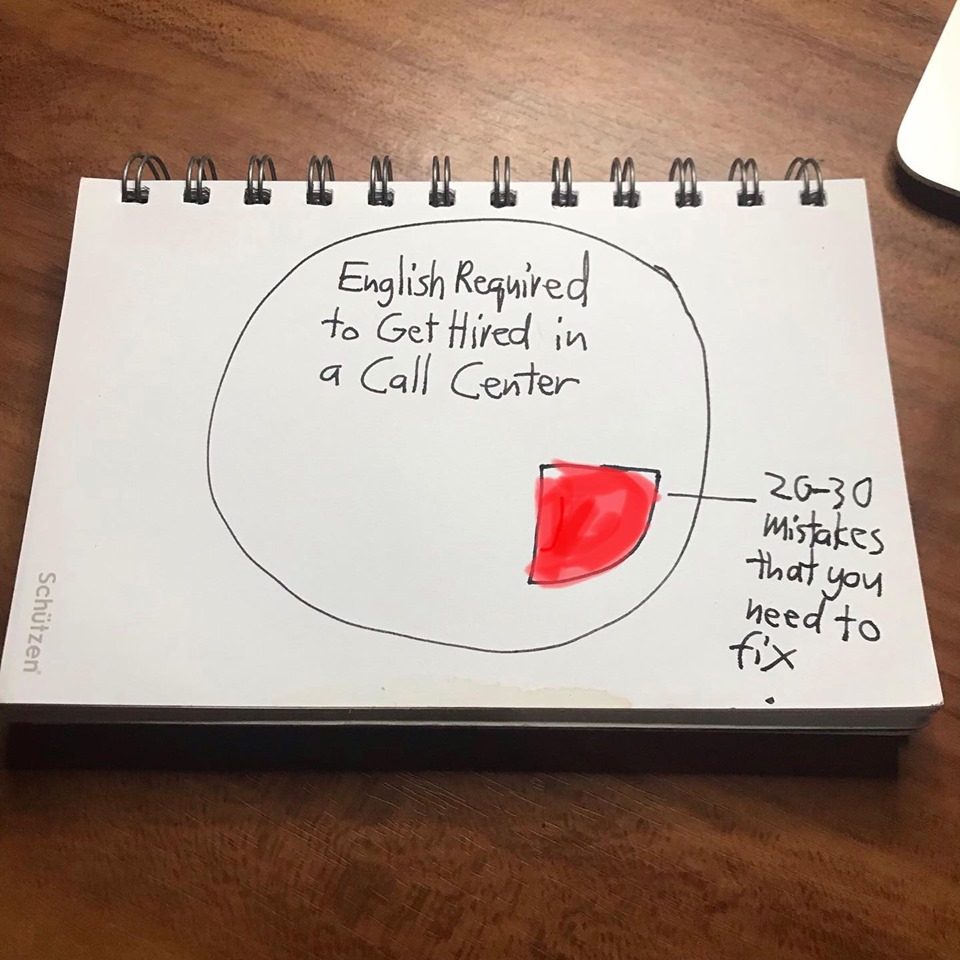 English Required
to Get Hired in
a Call Center
20-30
mistakes
that you
need to
fix
Schützen